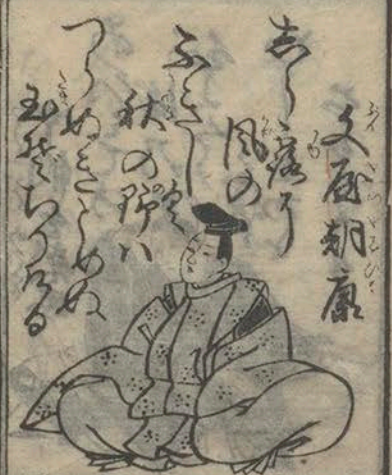 文屋朝康
しら露に
風の
ふきしく
秋の野ハ
つらぬきとめぬ
玉ぞちりける